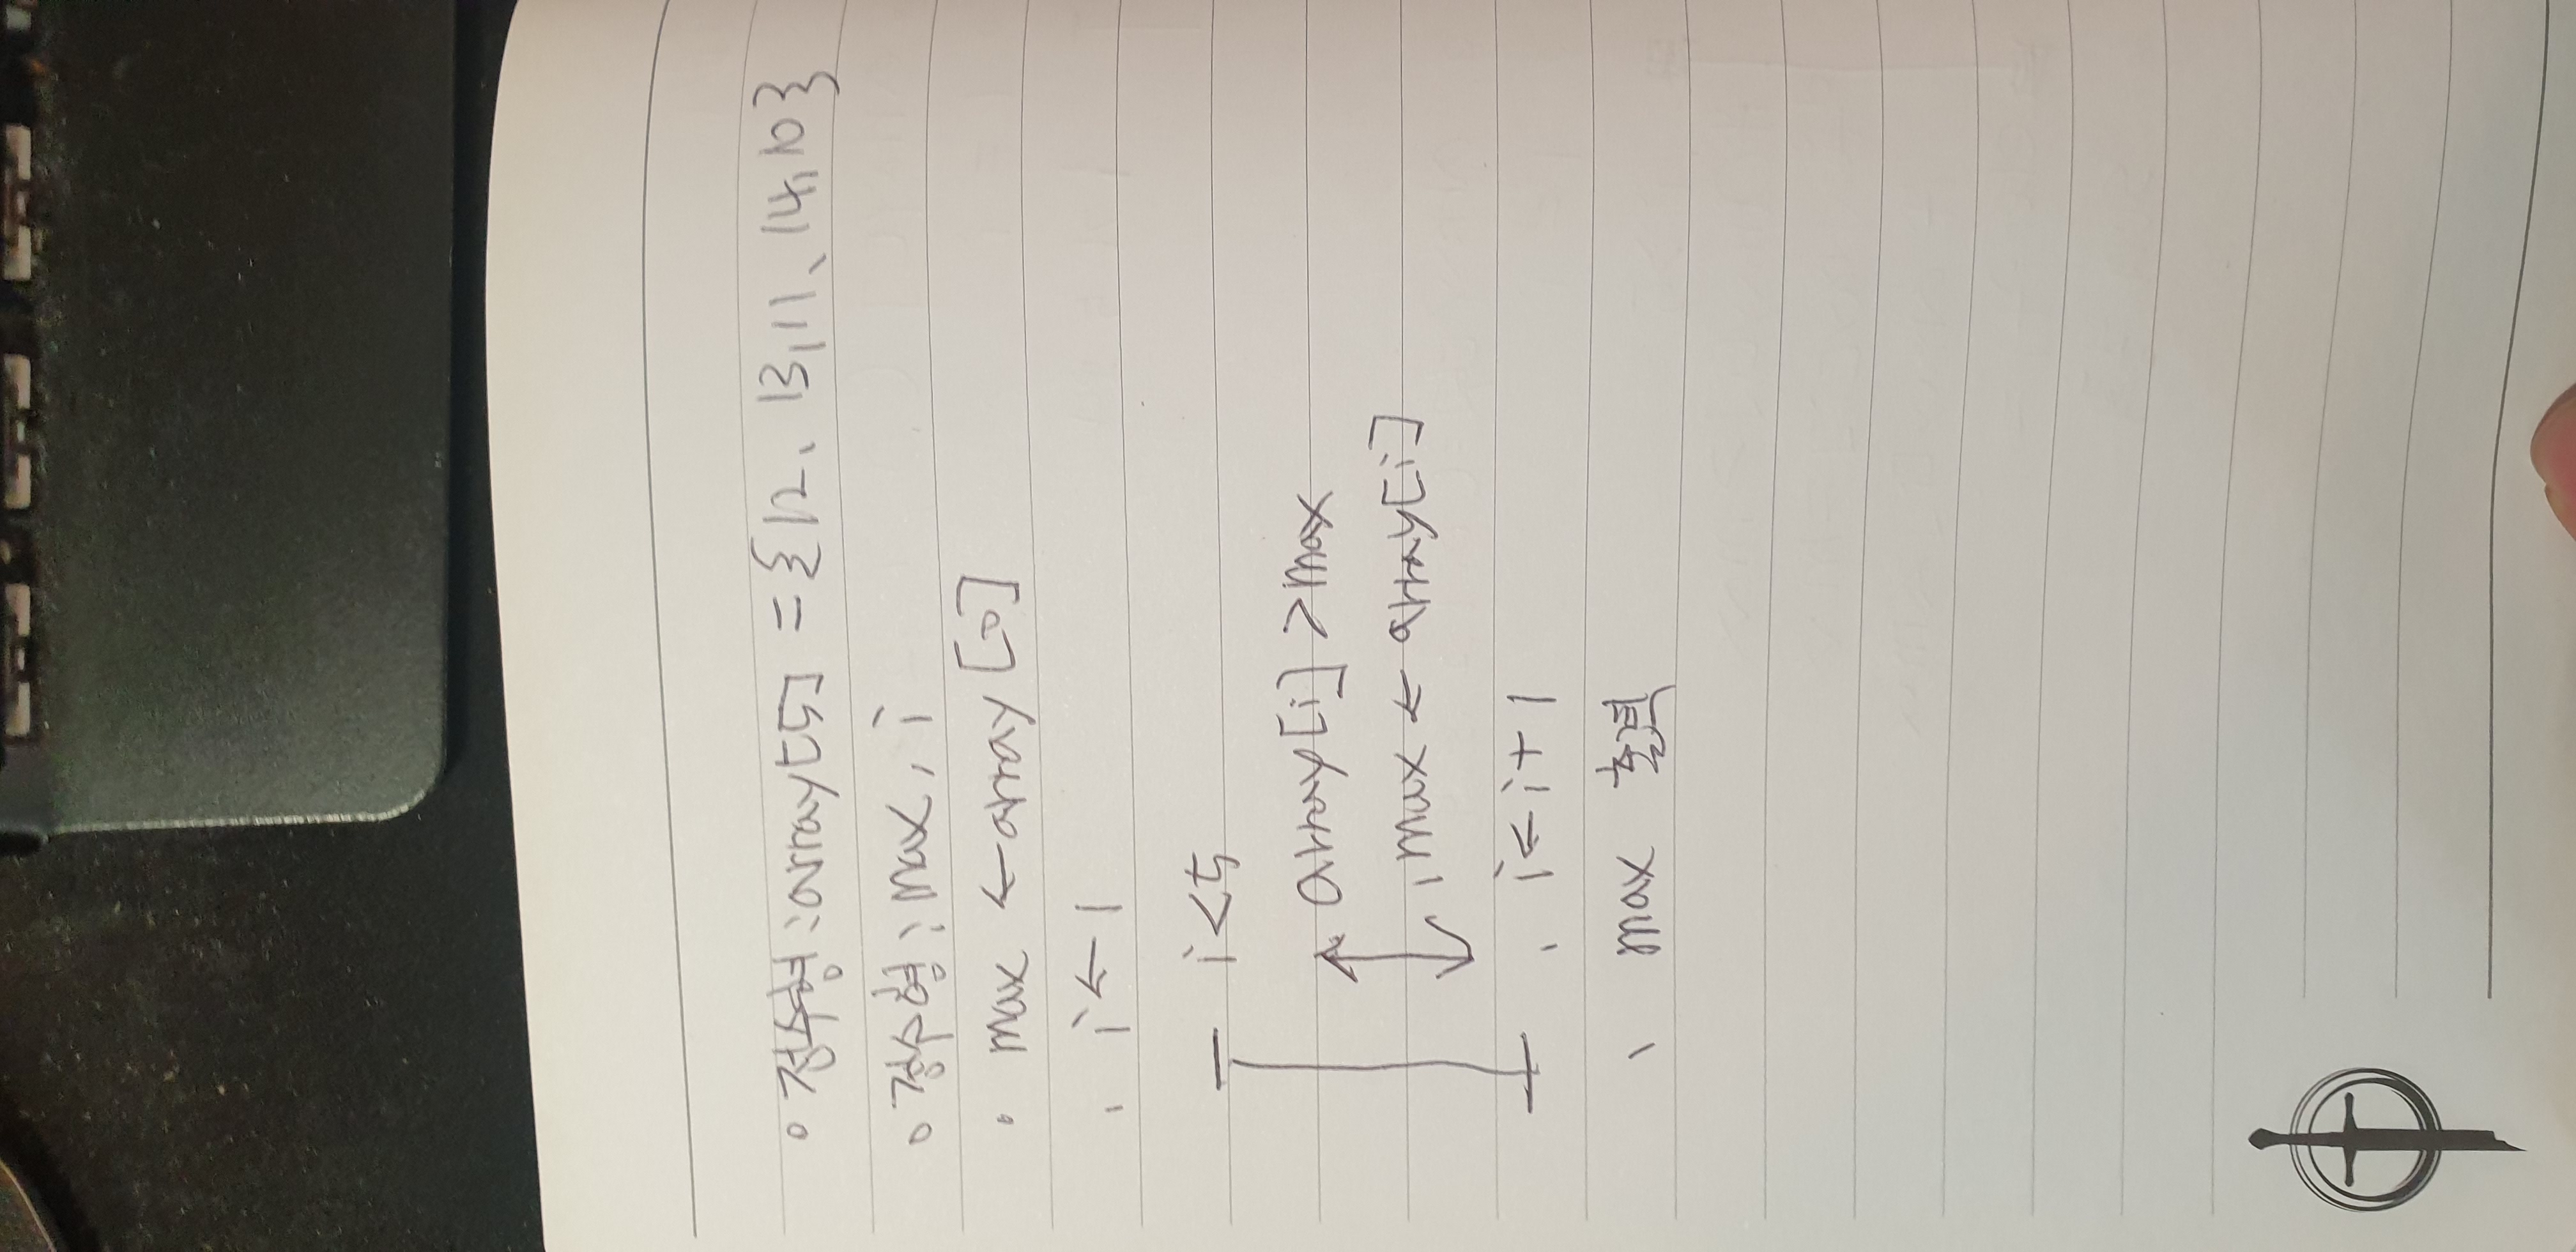 ○ 정수형 : array[5] = {12, 13, 11, 14, 10}
○ 정수형 : max, i
· max ← array [0]
· i ← 1
i < 5
array[i] > max
· max ← array[i]
· i ← i + 1
· max 출력